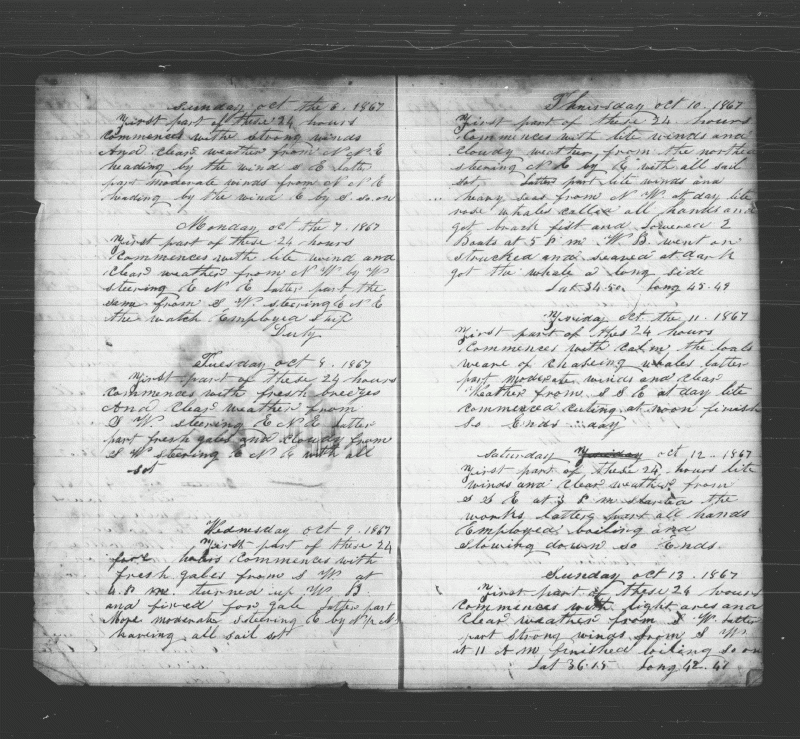 Sunday oct the 6. 1867
First part of these 24 hours
commences withe strong winds
And clear weather from N N E
heading by the wind S E latter
part moderate winds from N N E
heading by the wind E by S. so on
Monday oct the 7. 1867
First part of these 24 hours
Commences with lite wind and
Clear weather from N W by W
steering E N E latter part the
same from S W. steering E N E
the watch Employed Ship
Duty
Tuesday oct 8. 1867
First part of these 24 hours
commences with fresh breezes
And Clear weather from
S W steering E N E latter
part fresh gales and cloudy from
S W steering E N E with all
sot
Wednesday oct 9. 1867
First part of these 24
hours commences with
fresh gales from S W at
4. P M. turned up W. B.
and fixed for gale latter part
More moderate steering E by N 1/2 N
having all sail sot
Thursday oct 10. 1867
First part of these 24 hours
Commences with lite winds and
cloudy weather from the northed
steering N E by E with all sail
sot. latter part lite winds and
heavy seas from N W at day lite
rose whales called all hands and
got brack fist and lowered 2
Boats at 5 P M W. B. went on
strucked and seared at dark
got the whale a long side
Lat 34.50 Long 45.49
Friday oct the 11. 1867
First part of thes 24 hours
commences with calm the boats
weare of chaseing whales latter
part moderate winds and clear
Weather from S S E at day lite
commenced cuting at noon finish
so Ends day
Saturday oct 12. 1867
First part of these 24 hours lite
winds and Clear weather from
S S E at 3 P M started the
works latter part all hands
Employed boiling and
Slowing down so Ends
Sunday oct 13. 1867
First part of these 24 hours
Commences with light ares and
Clear weather from S W latter
part strong winds from S W
at 11 A M finished boiling so on
Lat 36.15 Long 42.41